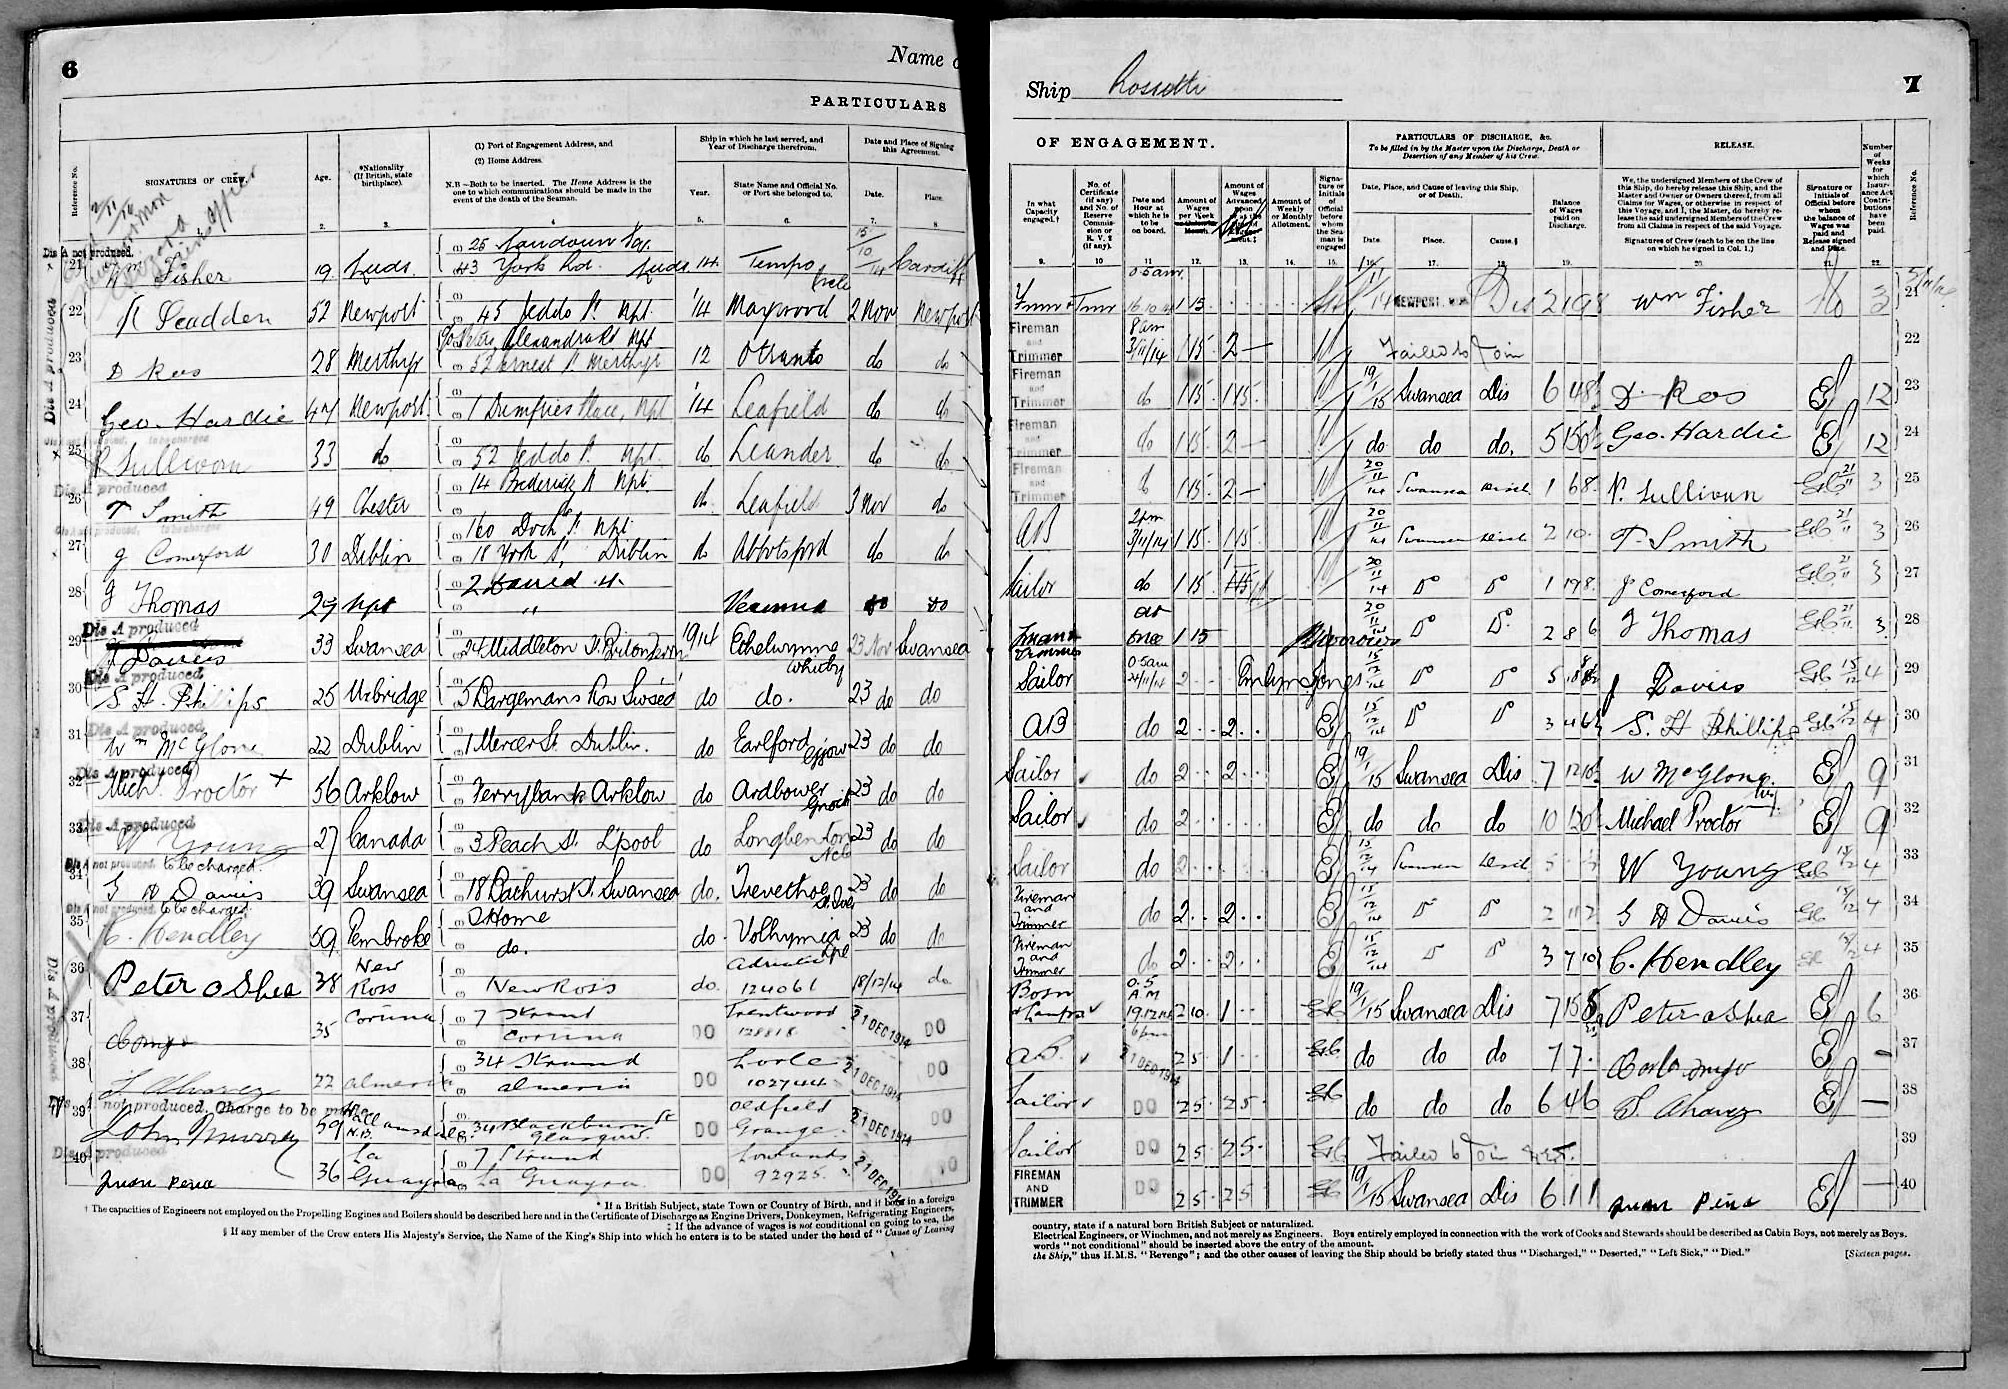 6
Name
PARTICULARS
Reference No.
SIGNATURES OF CREW.
Age.
*Nationality (If British, state birthplace).
(1) Port of Engagement Address, and
(2) Home Address.
N.B.—Both to be inserted. The Home Address is the one to which communications should be made in the event of the death of the Seaman.
Ship in which he last served, and Year of Discharge therefrom.
Year.
State Name and Official No. or Port she belonged to.
Date and Place of Signing this Agreement.
Date.
Place.
2. 3. 4 5. 6. 7. 8
Dis A not produced.
21 Wm Fisher 19 Leeds 43 York Rd. Leeds 14 Tempo 15/10/14 Cardiff
22 52 Newport 45 Jeddo St Npt. '14 Maywood 2 Nov Newport
Alexandra Rd Npt
23 D Rees 28 Merthyr 52 Ernest St Merthyr 12 Otranto do do
24 Geo. Hardie 47 Newport 1 Dumfries Place, Npt '14 Leafield do do
25 P Sullivan 33 do 52 Jeddo St. Npt. do Leander do do
Dis A produced
14 Frederick St Npt.
26 T Smith 49 Chester do. Leafield 3 Nov do
160 Dock St Npt
27 J Comerford 30 Dublin 18 York St, Dublin do Abbotsford do do
28 J Thomas 29 Npt 2 David St. " do do
Dis A produced
29 J Davies 33 Swansea 34 Middleton St. Briton Ferry 1914 Ethelwynne Whitby 23 Nov Swansea
Dis A produced
30 S. H. Phillips 25 Uxbridge 5 Bargemans Row Swsea do do. 23 do do
Dis A produced
31 Wm McGlone 22 Dublin 1 Mercer St. Dublin. do Earlford 23 do do
Dis A produced
32 Mich. Proctor + 56 Arklow Ferrybank Arklow do Ardbower 23 do do
Dis A produced
33 W Young 27 Canada 3 Peach St. L'pool do 23 do do
Dis A not produced. to be charged.
34 D Davis 39 Swansea 18 Bathurst St. Swansea do. Trevethoe St. Ives 23 do do
Dis A not produced. to be charged.
35 C. Hendley 59 Pembroke Home do. do. Volhynia Lpl 23 do do
36 Peter O Shea 38 New Ross New Ross do. 124061 18/12/14 do
37 35 Coruna 7 Strand Coruna DO Trentwood 128818 21 DEC 1914 DO
38 22 Almeria 34 Strand Almeria DO 102744 21 DEC 1914 DO
Dis A not produced. Charge to be made
39 John Murray 59 34 Blackburn St Glasgow. DO Oldfield Grange 21 DEC 1914 DO
Dis A produced
40 Juan Pena 36 La Guayra 7 Strand La Guayra DO 92925. 21 DEC 1914 DO
* If a British Subject, state Town or Country of Birth, and if born in a foreign
† The capacities of Engineers not employed on the Propelling Engines and Boilers should be described here and in the Certificate of Discharge as Engine Drivers, Donkeymen, Refrigerating Engineers,
‡ If the advance of wages is not conditional on going to sea, the
§ If any member of the Crew enters His Majesty's Service, the Name of the King's Ship into which he enters is to be stated under the head of "Cause of Leaving
Ship Rossetti
7
OF ENGAGEMENT.
PARTICULARS OF DISCHARGE, &c.
To be filled in by the Master upon the Discharge, Death or Desertion of any Member of his Crew.
RELEASE.
Number of Weeks for which Insurance Act Contributions have been paid.
Reference No.
In what Capacity engaged.†
No. of Certificate (if any) and No. of Reserve Commission or R.V.2 (if any).
Date and Hour at which he is to be on board.
Amount of Wages per Week
Amount of Wages Advanced
Amount of Weekly or Monthly Allotment.
Signature or Initials of Official before whom the Seaman is engaged
Date, Place, and Cause of leaving this Ship, or of Death.
Date. Place. Cause.§
Balance of Wages paid on Discharge.
We, the undersigned Members of the Crew of this Ship, do hereby release this Ship, and the Master and Owner or Owners thereof, from all Claims for Wages, or otherwise in respect of this Voyage, and I, the Master, do hereby release the said undersigned Members of the Crew from all Claims in respect of the said Voyage.
Signatures of Crew (each to be on the line on which he signed in Col. 1.)
Signature or Initials of Official before whom the balance of Wages was paid and Release signed and Date.
9. 10 11. 12. 13. 14. 15. 16. 17. 18. 19. 20. 21. 22.
NEWPORT, MON. Dis 2 19 8 Wm Fisher 3 21
Fireman and Trimmer 8 am 3/11/14 1 15 2 — Failed to Join 22
Fireman and Trimmer do 1 15 1 15 19/1/15 Swansea Dis 6 48 D. Rees 12 23
Fireman and Trimmer do 1 15 2 — do do do. 5 150 Geo. Hardie 12 24
Fireman and Trimmer do 1 15 2 — 20/11/14 Swansea Disch 1 68 P. Sullivan 21/11 3 25
AB 2 pm 3/11/14 1 15 1 15 20/11/14 Swansea Disch 2 10 T. Smith 21/11 3 26
Sailor do 1 15 20/11/14 Do Do 1 19 8 J Comerford 21/11 3 27
at once 1 15 20/11/14 Do Do 2 8 6 J Thomas 21/11 3 28
Sailor 0.5am 24/11/14 2 Emlyn Jones 15/12/14 Do Do J Davies 15/12 4 29
AB do 2 2 15/12/14 Do Do S. H Phillips 15/12 4 30
Sailor do 2 2 19/1/15 Swansea Dis 7 12 10 W McGlone 9 31
Sailor do 2 do do do Michael Proctor 9 32
Sailor do 2 15/12/14 Swansea Disch W Young 15/12 4 33
Fireman and Trimmer do 2 2 15/12/14 Do Do 2 11 2 D Davis 15/12 4 34
Fireman and Trimmer do 2 2 15/12/14 Do Do 3 7 10 C. Hendley 15/12 4 35
Bosn & Lamps 0.5 A.M 19.12.14 2 10 1 19/1/15 Swansea Dis Peter O Shea 6 36
AB. 6 pm 21 DEC 1914 2 5 1 do do do 7 7 — 37
Sailor DO 2 5 2 5 do do do 6 4 6 — 38
Sailor DO 2 5 2 5 Failed to Join 39
FIREMAN AND TRIMMER DO 2 5 2 5 19/1/15 Swansea Dis 6 1 1 Juan Pena — 40
country, state if a natural born British Subject or naturalized.
Electrical Engineers, or Winchmen, and not merely as Engineers. Boys entirely employed in connection with the work of Cooks and Stewards should be described as Cabin Boys, not merely as Boys.
words "not conditional" should be inserted above the entry of the amount.
the Ship," thus H.M.S. "Revenge"; and the other causes of leaving the Ship should be briefly stated thus "Discharged," "Deserted," "Left Sick," "Died."
[Sixteen pages.